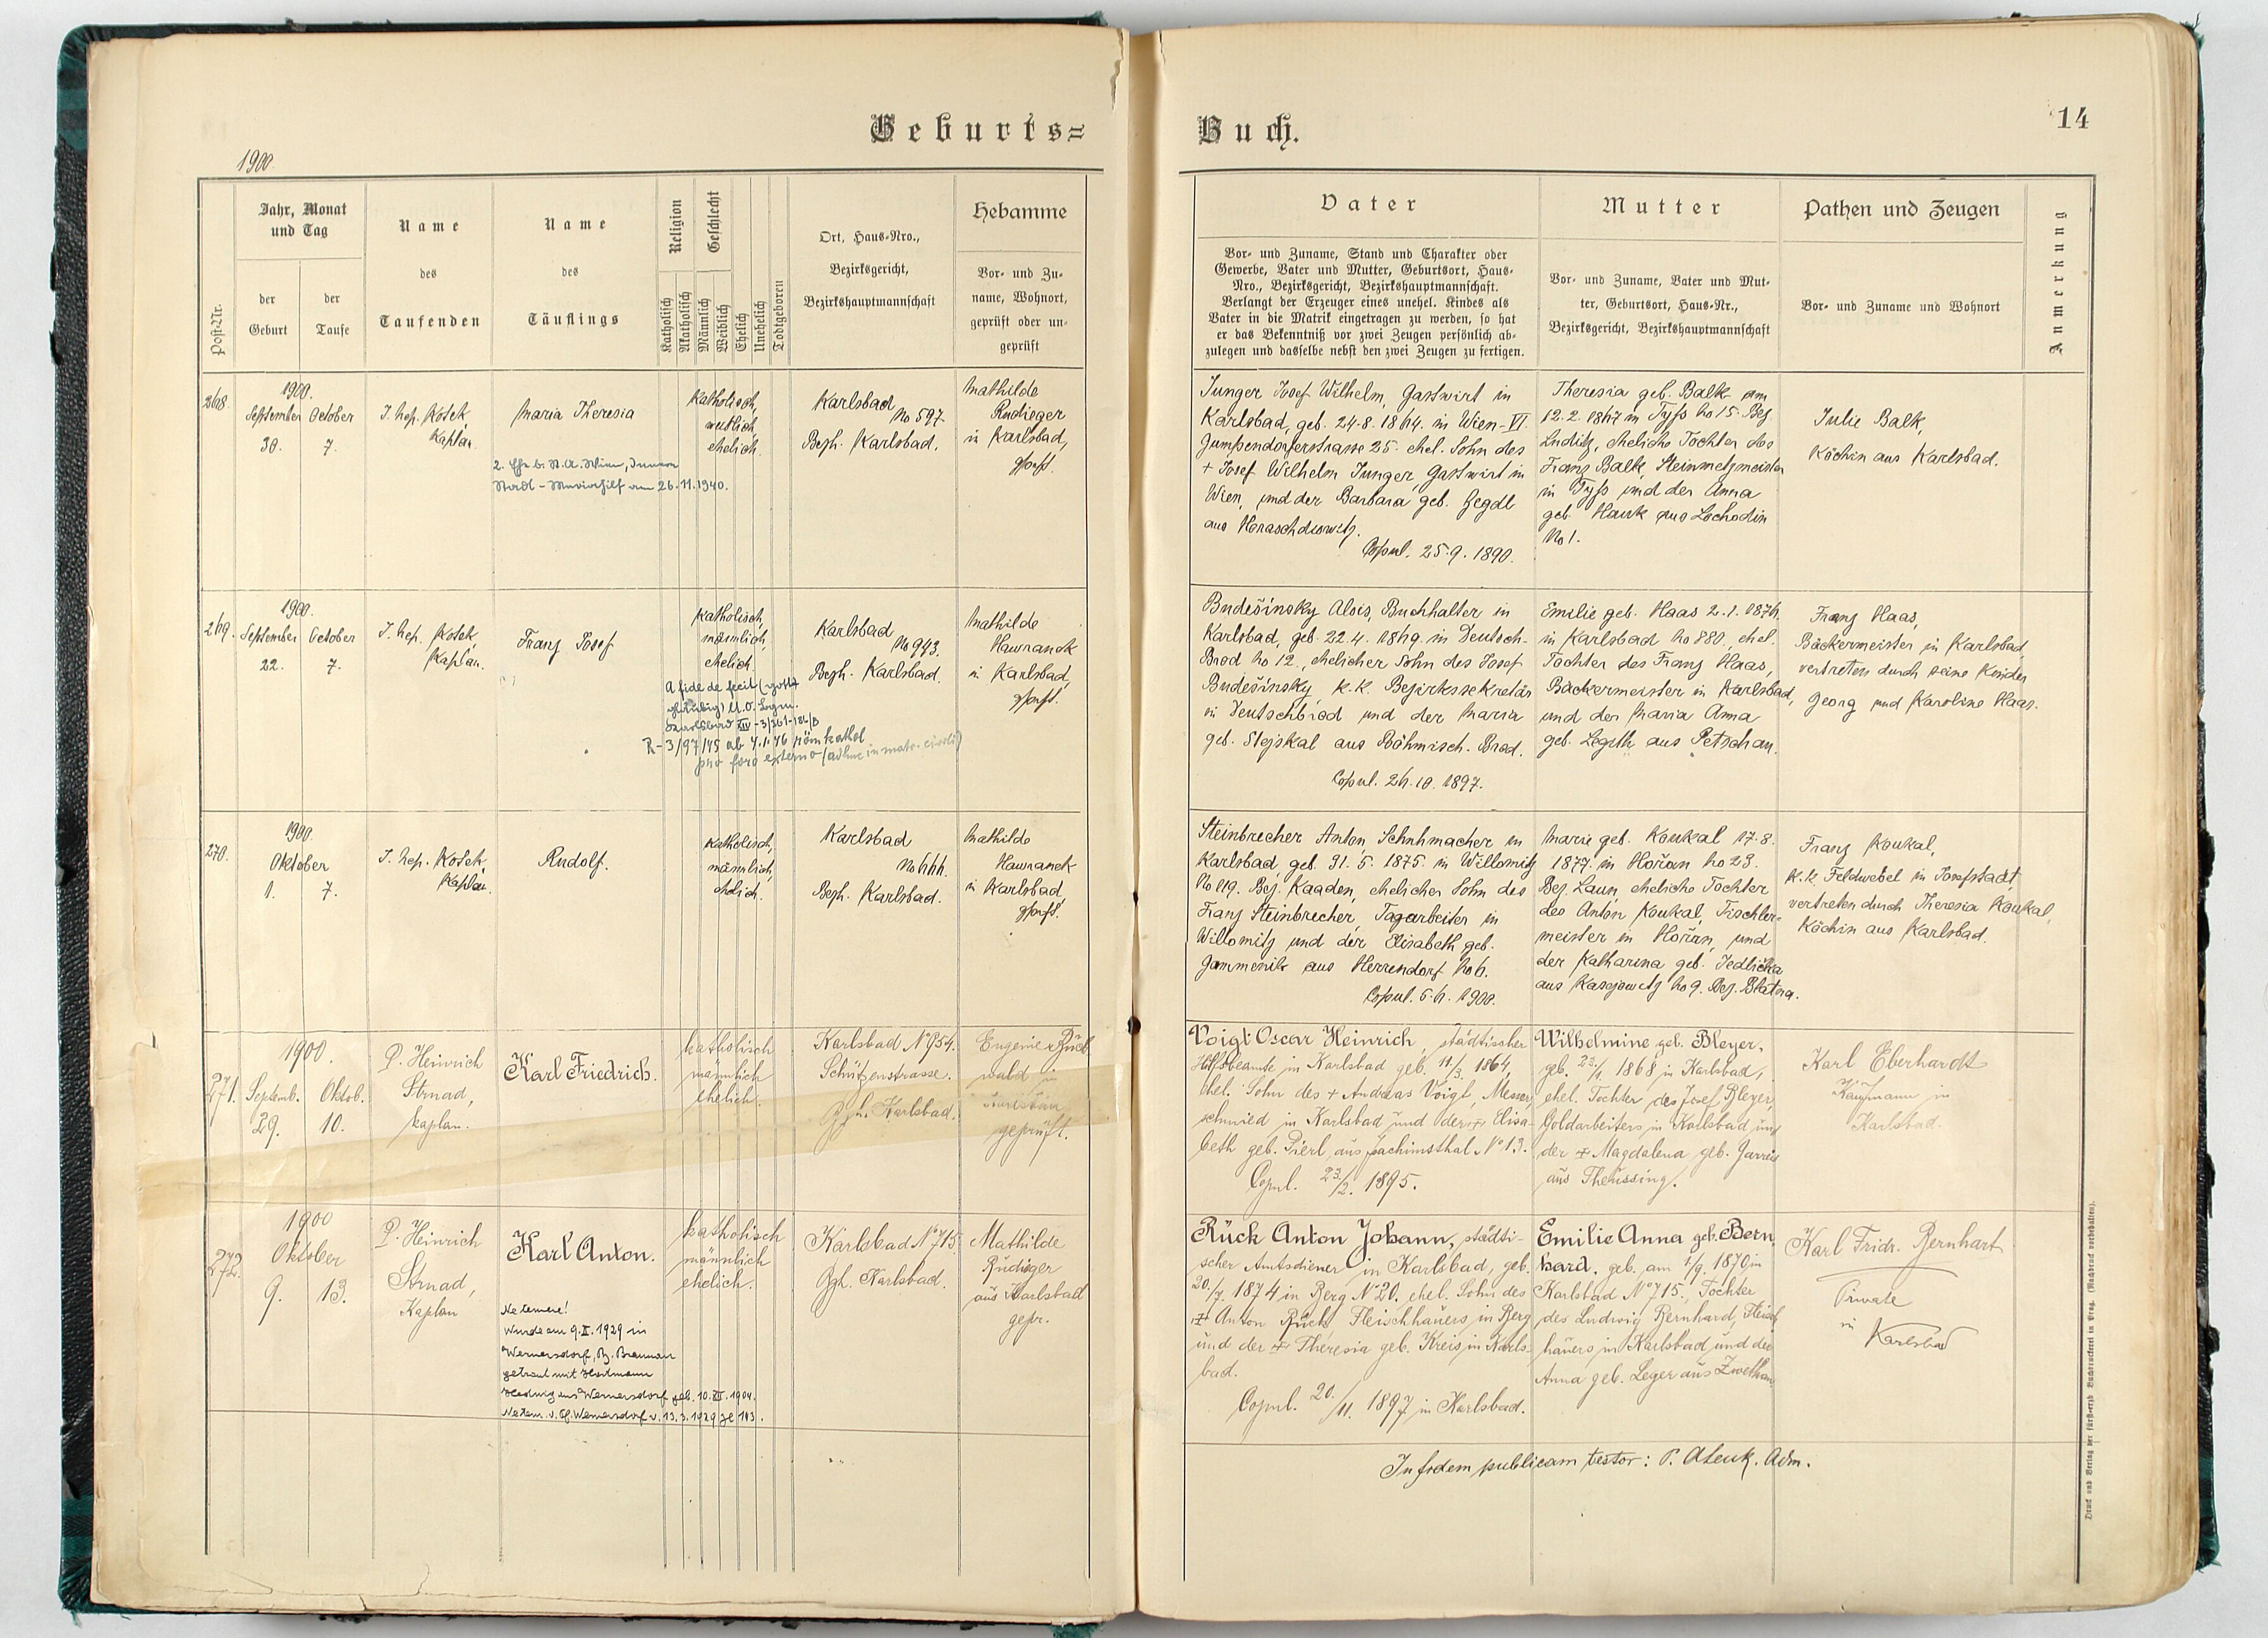 Geburts=
Buch.
14
1900.
Post-Nr.
Jahr, Monat
und Tag
der
Geburt
der
Taufe
Name
des
Taufenden
Name
des
Täuflings
Religion
Katholisch
Akatholisch
Geschlecht
Männlich
Weiblich
Ehelich
Unehelich
Todtgeboren
Ort, Haus-Nro.,
Bezirksgericht,
Bezirkshauptmannschaft
Hebamme
Vor- und Zu-
name, Wohnort,
geprüft oder un-
geprüft
Vater
Vor- und Zuname, Stand und Charakter oder
Gewerbe, Vater und Mutter, Geburtsort, Haus-
Nro., Bezirksgericht, Bezirkshauptmannschaft.
Verlangt der Erzeuger eines unehel. Kindes als
Vater in die Matrik eingetragen zu werden, so hat
er das Bekenntniß vor zwei Zeugen persönlich ab-
zulegen und dasselbe nebst den zwei Zeugen zu fertigen.
Mutter
Vor- und Zuname, Vater und Mut-
ter, Geburtsort, Haus-Nr.,
Bezirksgericht, Bezirkshauptmannschaft
Pathen und Zeugen
Vor- und Zuname und Wohnort
Anmerkung
268.
1900.
September October
30. 7.
J. Nep. Kosek,
Kaplan.
Maria Theresia
am 26.11.1940.
Katholisch,
weiblich,
ehelich.
Karlsbad
No 597.
Bezh. Karlsbad.
Mathilde
Rudieger
in Karlsbad,
gepr.
Junger Josef Wilhelm, Gastwirt in
Karlsbad, geb. 24.8.1864. in Wien-VI.
Gumpendorferstrasse 25. ehel. Sohn des
+ Josef Wilhelm Junger, Gastwirt in
Wien, und der Barbara geb.
aus
Copul. 25.9.1890.
Theresia geb. Balk am
12.2.1867 in Tyss No 15. Bez.
Luditz, eheliche Tochter des
Franz Balk, Steinmetzmeister
in Tyss und der Anna
geb. Hauk aus Lochodin
No 1.
Julie Balk,
Köchin aus Karlsbad.
269.
1900.
September October
22. 7.
J. Nep. Kosek,
Kaplan.
Franz Josef
Katholisch,
männlich,
ehelich.
A fide defecit (gott-
gläubig)
R-3/97/45 ab 4.1.46 röm kathol
pro foro externo (adhuc in matr. civili)
Karlsbad
No 943.
Bezh. Karlsbad.
Mathilde
Hawranek
in Karlsbad,
gepr.
Budešínsky Alois, Buchhalter in
Karlsbad, geb. 22.4.1869. in Deutsch-
Brod No 12., ehelicher Sohn des Josef
Budešínsky, k.k. Bezirkssekretär
in Deutschbrod und der Maria
geb. Slejskal aus Böhmisch-Brod.
Copul. 26.10.1897.
Emilie geb. Haas 2.1.1876.
in Karlsbad No 880., ehel.
Tochter des Franz Haas,
Bäckermeister in Karlsbad,
und der Maria Anna
geb. aus Petschau.
Franz Haas,
Bäckermeister in Karlsbad,
vertreten durch seine Kinder
Georg und Karoline Haas.
270.
1900.
Oktober
1. 7.
J. Nep. Kosek,
Kaplan.
Rudolf.
Katholisch,
männlich,
ehelich.
Karlsbad
No 666.
Bezh. Karlsbad.
Mathilde
Hawranek
in Karlsbad,
gepr.
Steinbrecher Anton, Schuhmacher in
Karlsbad, geb. 31.5.1875. in Willomitz
No 119. Bez. Kaaden, ehelicher Sohn des
Franz Steinbrecher, Tagarbeiter in
Willomitz und der Elisabeth geb.
aus Herrendorf No 6.
Copul. 5.6.1900.
Marie geb. Koukal 17.8.
1877. in Hořan No 23.
Bez. Laun, eheliche Tochter
des Anton Koukal, Tischler-
meister in Hořan, und
der Katharina geb. Jedlička
aus Kasejowitz No 9. Bez. Blatna.
Franz Koukal,
K.k. Feldwebel in Josefstadt,
vertreten durch Theresia Koukal,
Köchin aus Karlsbad.
271.
1900.
Septemb. Oktob.
29. 10.
P. Heinrich
Strnad,
Kaplan.
Karl Friedrich.
katholisch
männlich
ehelich.
Karlsbad No 954.
Schützenstrasse.
Bzh. Karlsbad.
Eugenie
in
Karlsbad
geprüft.
Voigt Oscar Heinrich, städtischer
Hilfsbeamte in Karlsbad geb. 11./3. 1864,
ehel. Sohn des + Andreas Voigt, Messer-
schmied in Karlsbad und der + Elisa-
beth geb. Pierl aus Joachimsthal No 13.
Copul. 23./2. 1895.
Wilhelmine geb. Bleyer,
geb. 23./1. 1868 in Karlsbad,
ehel. Tochter des Josef Bleyer,
Goldarbeiters in Karlsbad und
der + Magdalena geb.
aus Theussing.
Karl Eberhardt
Kaufmann in
Karlsbad.
272.
1900
Oktober
9. 13.
P. Heinrich
Strnad,
Kaplan
Karl Anton.
Ne temere!
Wurde am 9.II.1929 in
Wernersdorf, Bz. Braunau
getraut mit Hartmann
Hedwig aus Wernersdorf geb. 10.XII.1904.
Ne tem. v. Wernersdorf v. 13.3.1929 143.
katholisch
männlich
ehelich.
Karlsbad No 715
Bzh. Karlsbad.
Mathilde
Rudiger
aus Karlsbad
gepr.
Rück Anton Johann, städti-
scher Amtsdiener in Karlsbad, geb.
20./7. 1874 in Berg No 20. ehel. Sohn des
+ Anton Rück, Fleischhauers in Berg
und der + Theresia geb. Kreis in Karls-
bad.
Copul. 20./11. 1897 in Karlsbad.
Emilie Anna geb. Bern-
hard, geb. am 1./9. 1870 in
Karlsbad No 715., Tochter
des Ludwig Bernhard, Fleisch-
hauers in Karlsbad und der
Anna geb. Leger aus Zwethau
Karl Fridr. Bernhart
Private
in
Karlsbad
In fidem publicam testor: P. Adm.
Druck und Verlag der fürst-erzb Buchdruckerei in Prag. (Nachdruck vorbehalten).